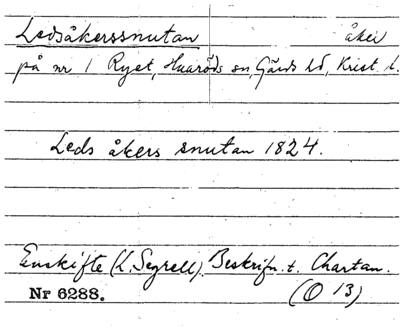 Ledsåkerssnutan åker
på nr 1 Ryet, Huaröds sn, Gärds hd, Krist. l.
Leds åkers snutan 1824.
Enskifte (L. Segrell). Beskrifn. t. Chartan.
Nr 6288. (O 13)